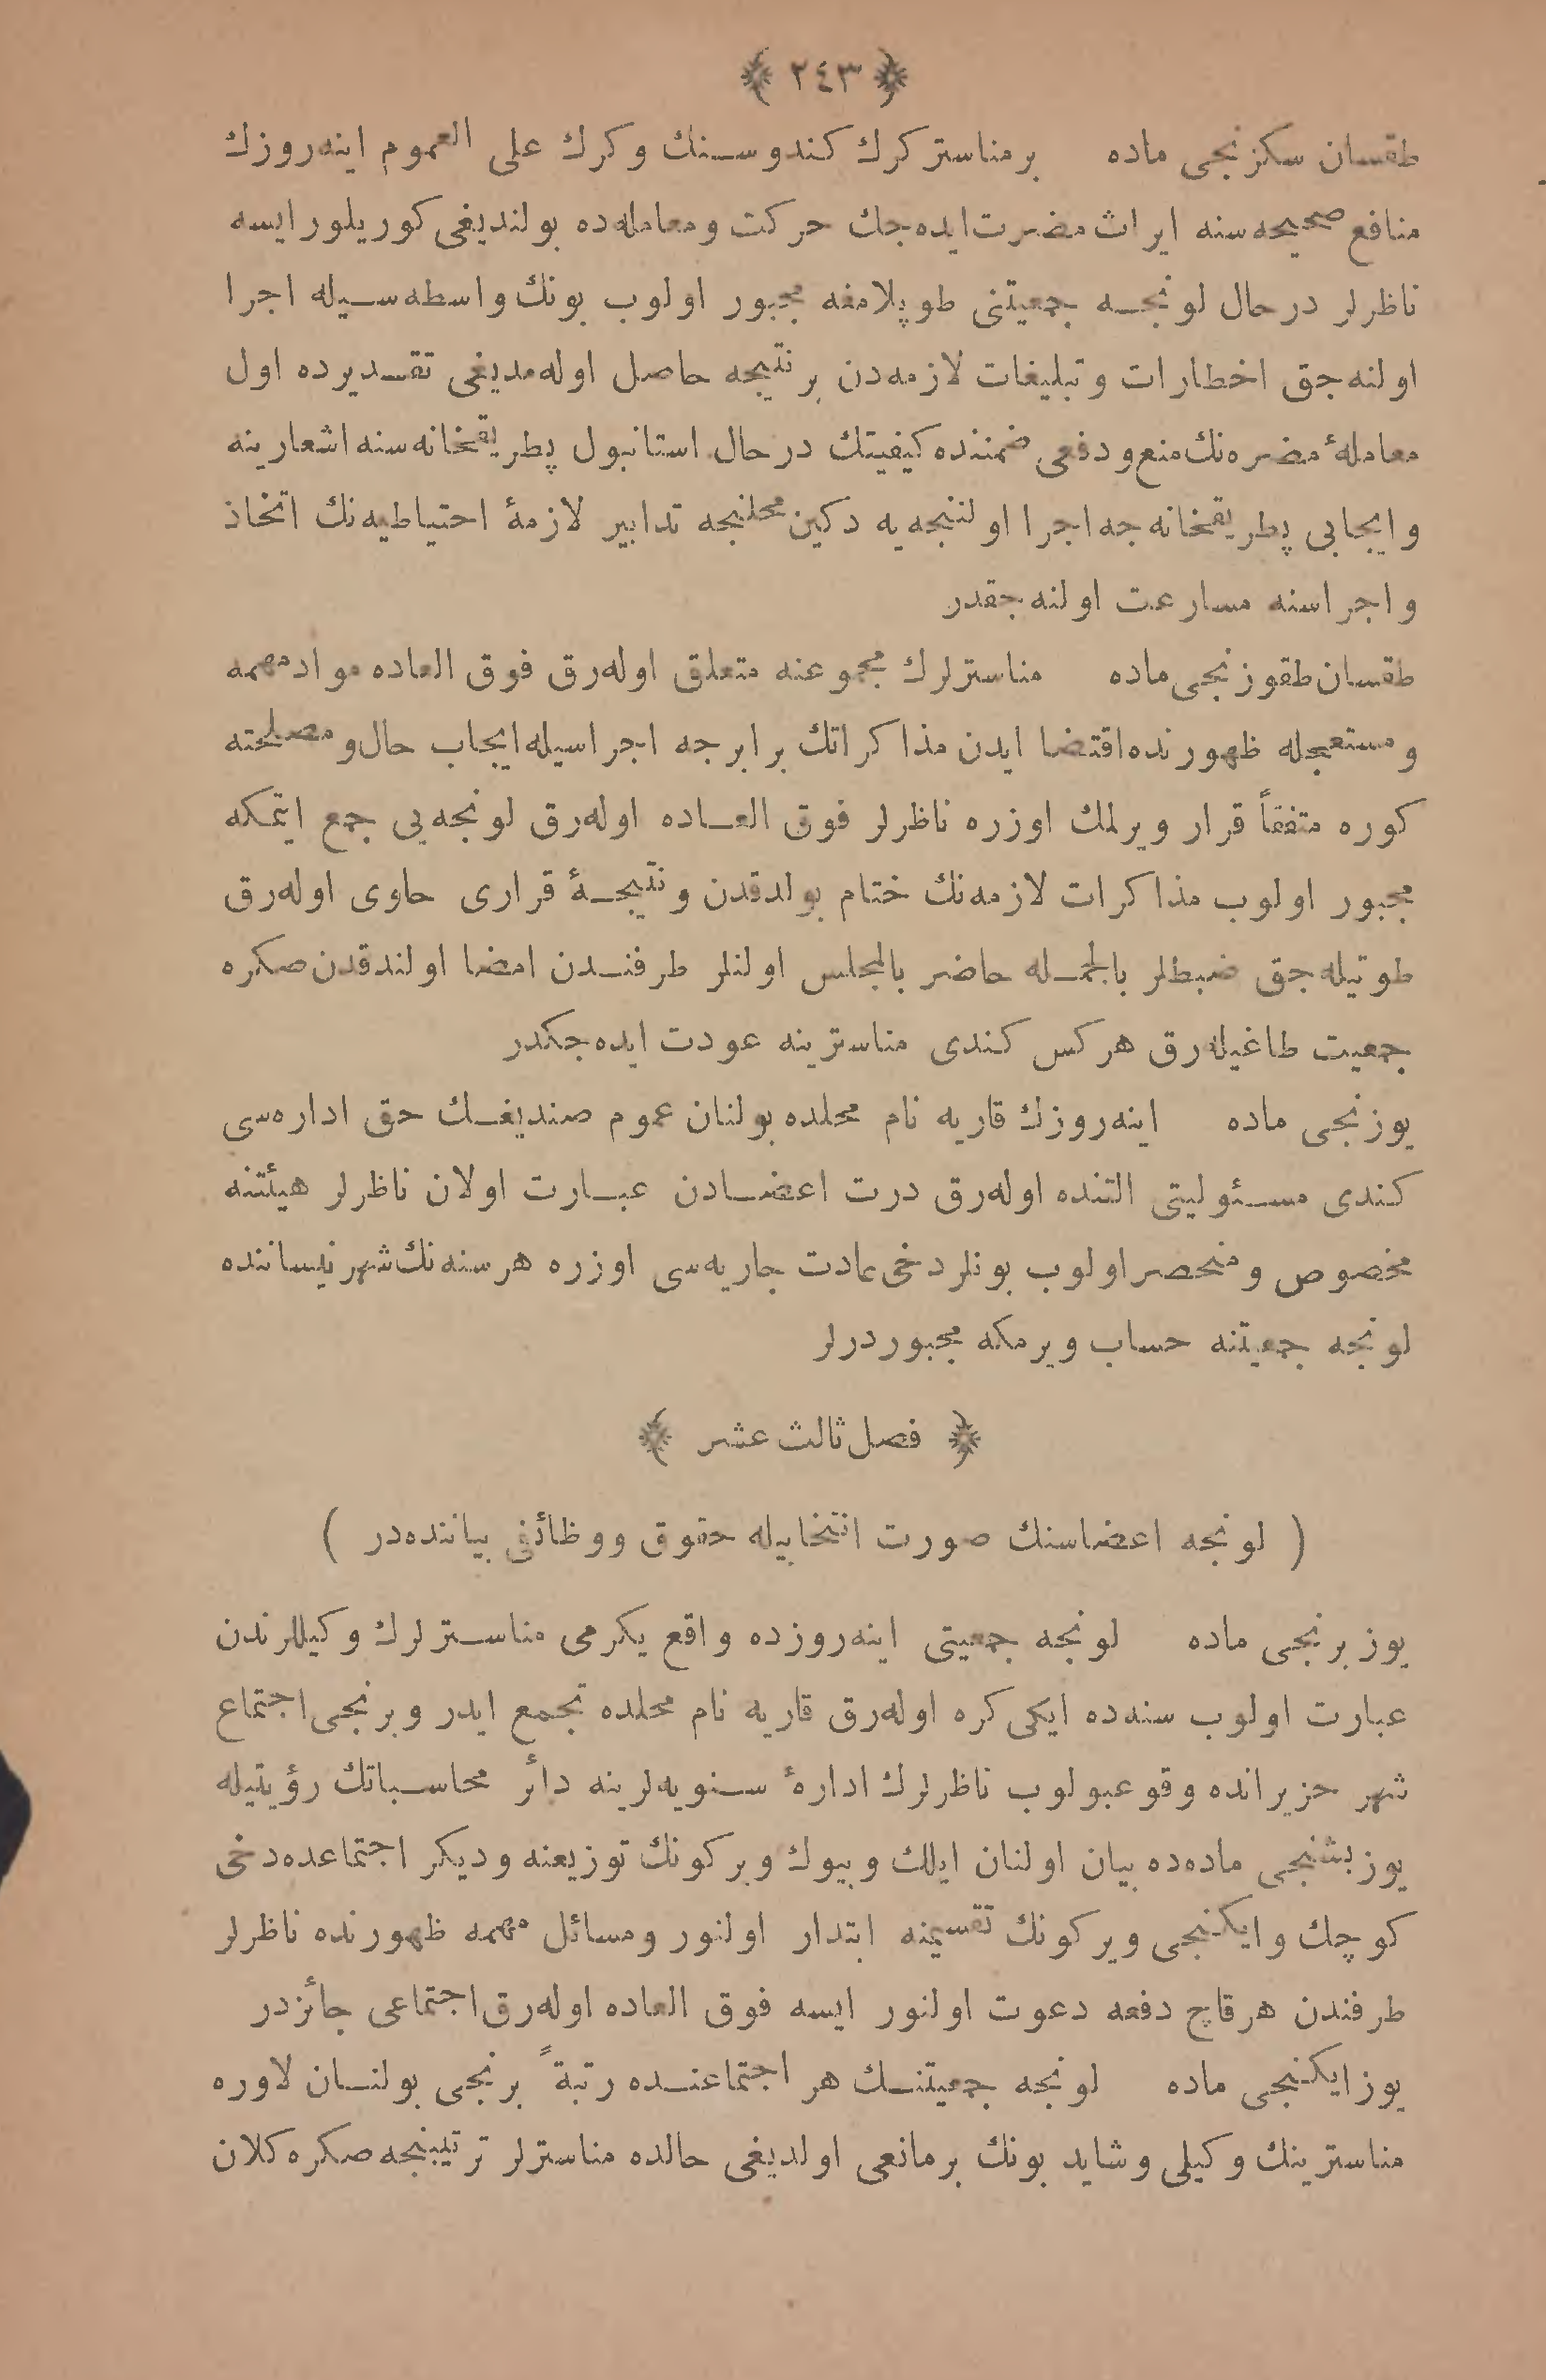 ﴿ ٢٤٣ ﴾
طقسان سكزنجی ماده برمناستر كرك كندوسنك وكرك علی العموم اینه‌روزك
منافع صحیحه‌سنه ایراث مضرت ایده‌جك حركت ومعامله‌ده بولندیغی كوریلور ایسه
ناظرلر درحال لونجه جمعیتنی طوپلامغه مجبور اولوب بونك واسطه‌سیله اجرا
اولنه‌جق اخطارات وتبلیغات لازمه‌دن برنتیجه حاصل اوله‌مدیغی تقدیرده اول
معاملهٔ مضره‌نك منع ودفعی ضمننده كیفیتك درحال استانبول پطریقخانه‌سنه اشعارینه
وایجابی پطریقخانه‌جه اجرا اولنجه‌یه دكین محلنجه تدابیر لازمهٔ احتیاطیه‌نك اتخاذ
واجراسنه مسارعت اولنه‌جقدر
طقسان طقوزنجی ماده مناسترلرك مجموعنه متعلق اوله‌رق فوق العاده مواد مهمه
ومستعجله ظهورنده اقتضا ایدن مذاكراتك برابرجه اجراسیله ایجاب حال ومصلحته
كوره متفقاً قرار ویرلمك اوزره ناظرلر فوق العاده اوله‌رق لونجه‌یی جمع ایتمكه
مجبور اولوب مذاكرات لازمه‌نك ختام بولدقدن ونتیجهٔ قراری حاوی اوله‌رق
طوتیله‌جق ضبطلر بالجمله حاضر بالمجلس اولنلر طرفندن امضا اولندقدن صكره
جمعیت طاغیله‌رق هركس كندی مناسترینه عودت ایده‌جكدر
یوزنجی ماده اینه‌روزك قاریه نام محلده بولنان عموم صندیغك حق اداره‌سی
كندی مسئولیتی التنده اوله‌رق درت اعضادن عبارت اولان ناظرلر هیئتنه
مخصوص ومنحصر اولوب بونلر دخی عادت جاریه‌سی اوزره هر سنه‌نك شهر نیساننده
لونجه جمعیتنه حساب ویرمكه مجبوردرلر
﴿ فصل ثالث عشر ﴾
( لونجه اعضاسنك صورت انتخابیله حقوق ووظائفی بیاننده‌در )
یوز برنجی ماده لونجه جمعیتی اینه‌روزده واقع یكرمی مناسترلرك وكیللرندن
عبارت اولوب سنه‌ده ایكی كره اوله‌رق قاریه نام محلده تجمع ایدر وبرنجی اجتماع
شهر حزیرانده وقوعبولوب ناظرلرك ادارهٔ سنویه‌لرینه دائر محاسباتك رؤیتیله
یوز بشنجی ماده‌ده بیان اولنان ایلك وبیوك ویركونك توزیعنه ودیكر اجتماعده‌دخی
كوچك وایكنجی ویركونك تقسیمنه ابتدار اولنور ومسائل مهمه ظهورنده ناظرلر
طرفندن هرقاچ دفعه دعوت اولنور ایسه فوق العاده اوله‌رق اجتماعی جائزدر
یوز ایكنجی ماده لونجه جمعیتنك هر اجتماعنده رتبةً برنجی بولنان لاوره
مناسترینك وكیلی وشاید بونك برمانعی اولدیغی حالده مناسترلر ترتیبنجه صكره كلان